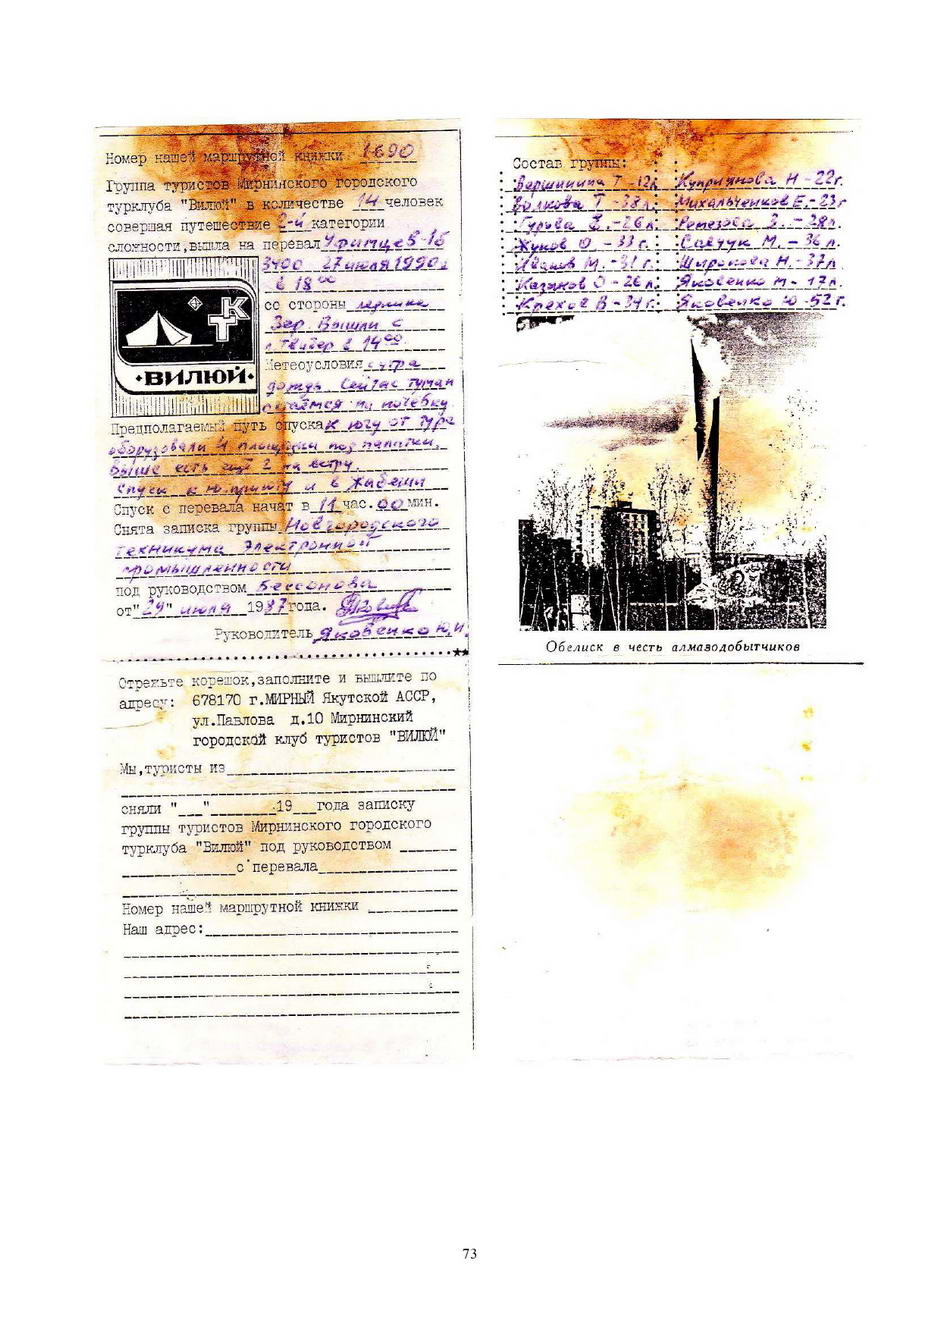 Номер нашей маршрутной книжки 1690
Группа туристов Мирнинского городского
турклуба "Вилюй" в количестве 14 человек
совершая путешествие 2-й категории
сложности, вышла на перевал
3400 27 июля 1990г
в 18 00
со стороны ледника
Зер. Вышли с
л Твибер в 14 00
КТ
·ВИЛЮЙ·
Метеоусловия с утра
дождь сейчас туман
остаемся на ночевку
Предполагаемый путь спуска к югу от тура
оборудовали 4 площадки под палатки,
выше есть ещё 2 на ветру.
Спуск к ю. приюту и в Жабеши
Спуск с перевала начат в 11 час. 00 мин.
Снята записка группы Новгородского
техникума электронной
промышленности
под руководством Бессонова
от "29" июля 1987 года.
Руководитель Яковенко Ю.И.
Отрежьте корешок, заполните и вышлите по
адресу: 678170 г.МИРНЫЙ Якутской АССР,
ул.Павлова д.10 Мирнинский
городской клуб туристов "ВИЛЮЙ"
Мы,туристы из
сняли "___" ________19___года записку
группы туристов Мирнинского городского
турклуба "Вилюй" под руководством
с перевала
Номер нашей маршрутной книжки
Наш адрес:
Состав группы:
Вершинина Т -12л Куприянова Н -22г.
Волкова Т -38л. Михальченков Е. -23г
Гурова -26л. Ремезова З. -28л.
Жуков Ю -33г. Савчук М. -36л.
Ивашов М. -31г. Широкова Н. -37л
Казанов О -26л. Яковенко Н- 17л.
Крехов В -34г. Яковенко Ю -52г.
Обелиск в честь алмазодобытчиков
73